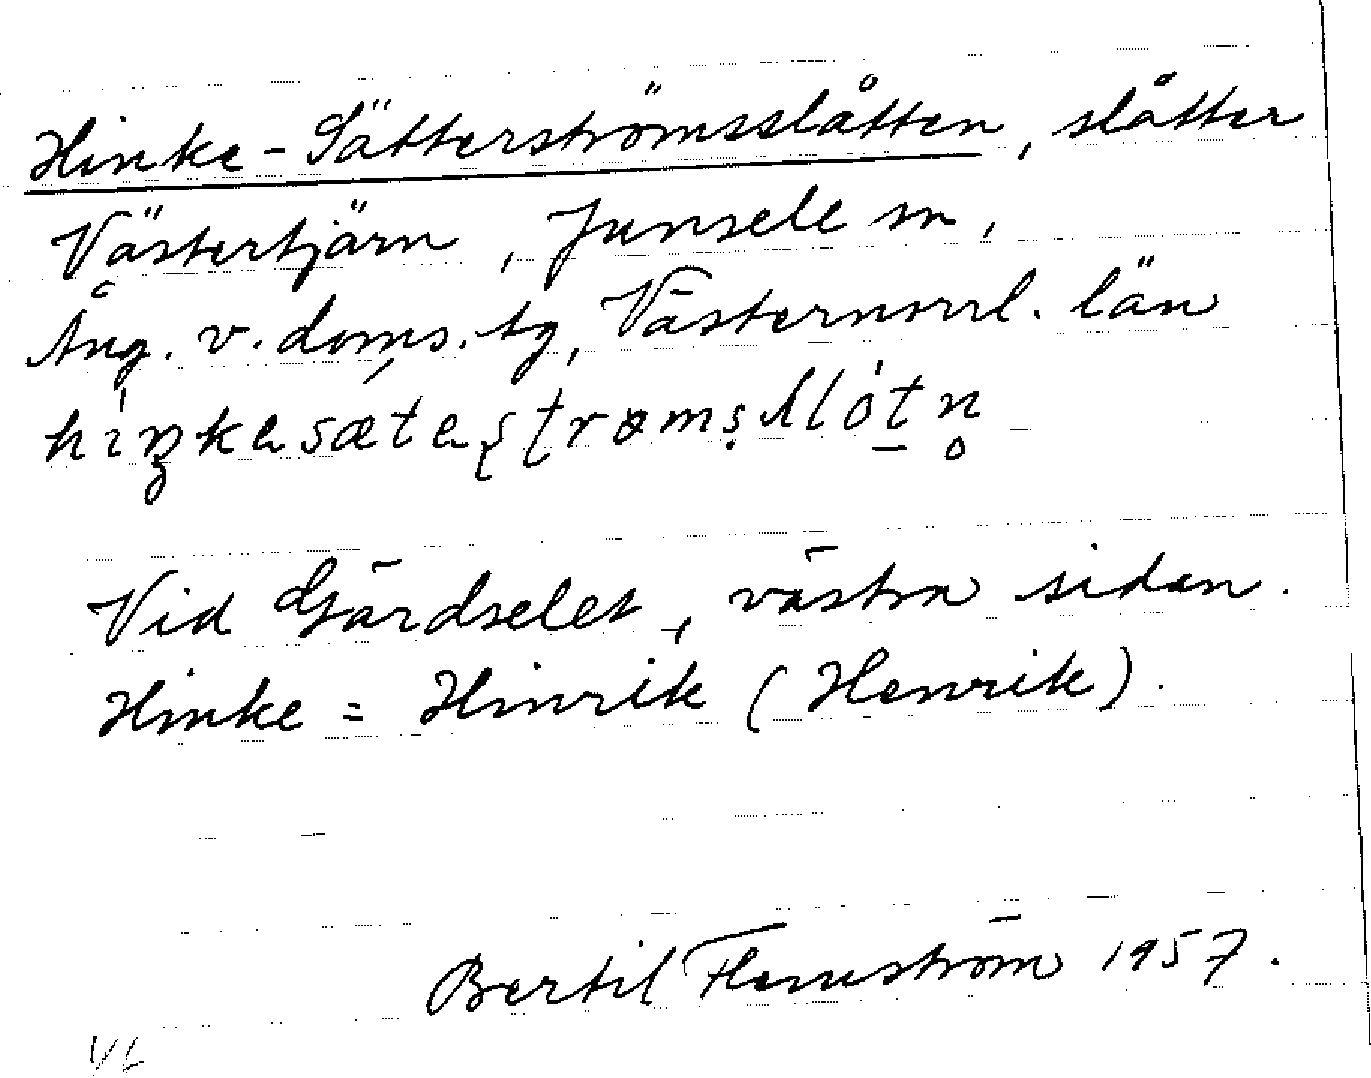 Hinke-Sätterströmsslåtten, slåtter
Västertjärn, Junsele sn,
Ång. v. doms. tg, Västernorrl. län
Vid Gärdselet, västra sidan.
Hinke = Hinrik (Henrik).
Bertil Flemström 1957.